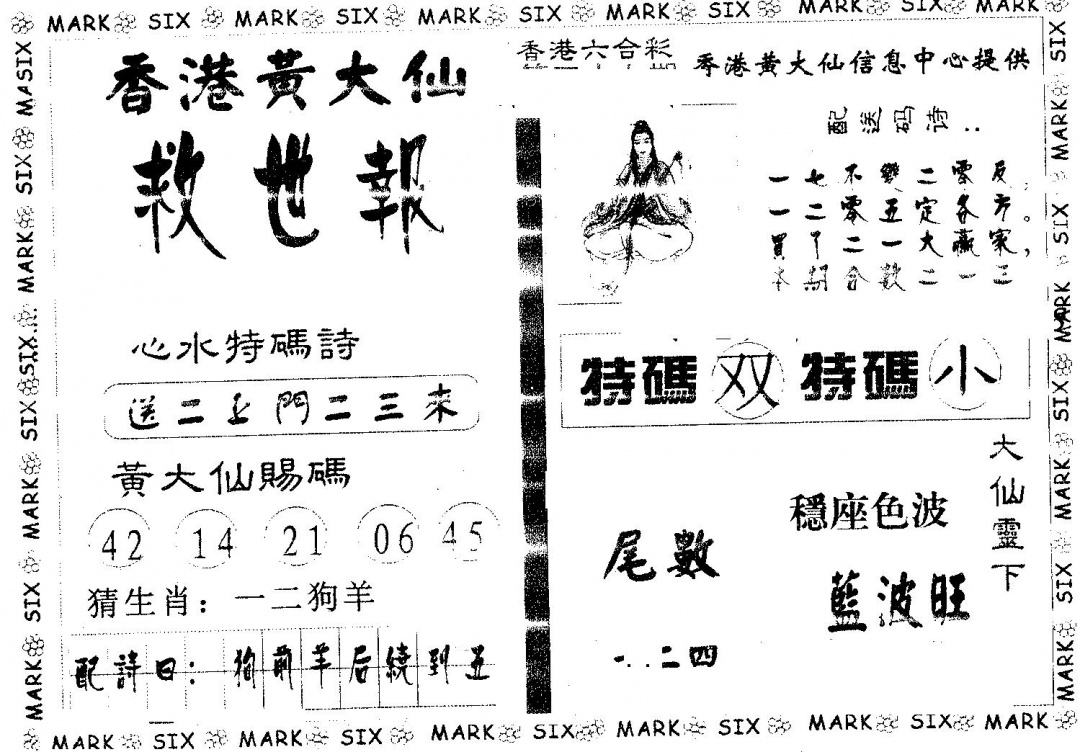 MARK SIX MARK SIX MARK SIX MARK SIX MARK SIX MARK
香港黃大仙
救世報
心水特碼詩
送二上門二三來
黃大仙賜碼
42 14 21 06 45
猜生肖：一二狗羊
配詩曰：狗前羊后繞到五
香港六合彩
香港黃大仙信息中心提供
配送码诗：
一七不變二零反，
一二零五定各方。
買了二一大贏家，
本期合數二一三
特碼双 特碼小
大仙靈下
穩座色波
藍波旺
尾數
一.二四
MASIX MARK SIX MARK SIX MARK SIX MARK SIX MARK
SIX MARK SIX MARK SIX MARK SIX MARK
MARK SIX MARK SIX MARK SIX MARK SIX MARK SIX MARK